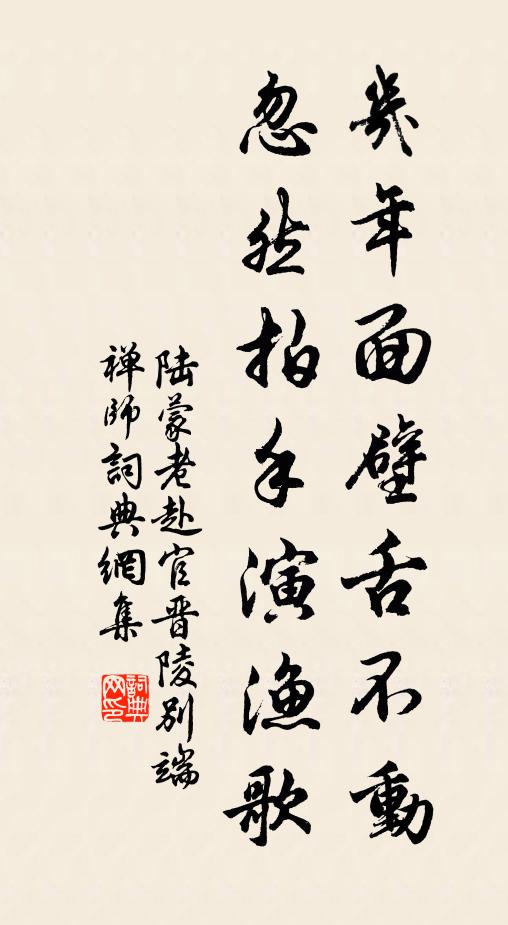 幾年面壁舌不動
忽然拍手演漁歌
陸蒙老赴官晋陵別端
禅師詞典網集
詞典
网印